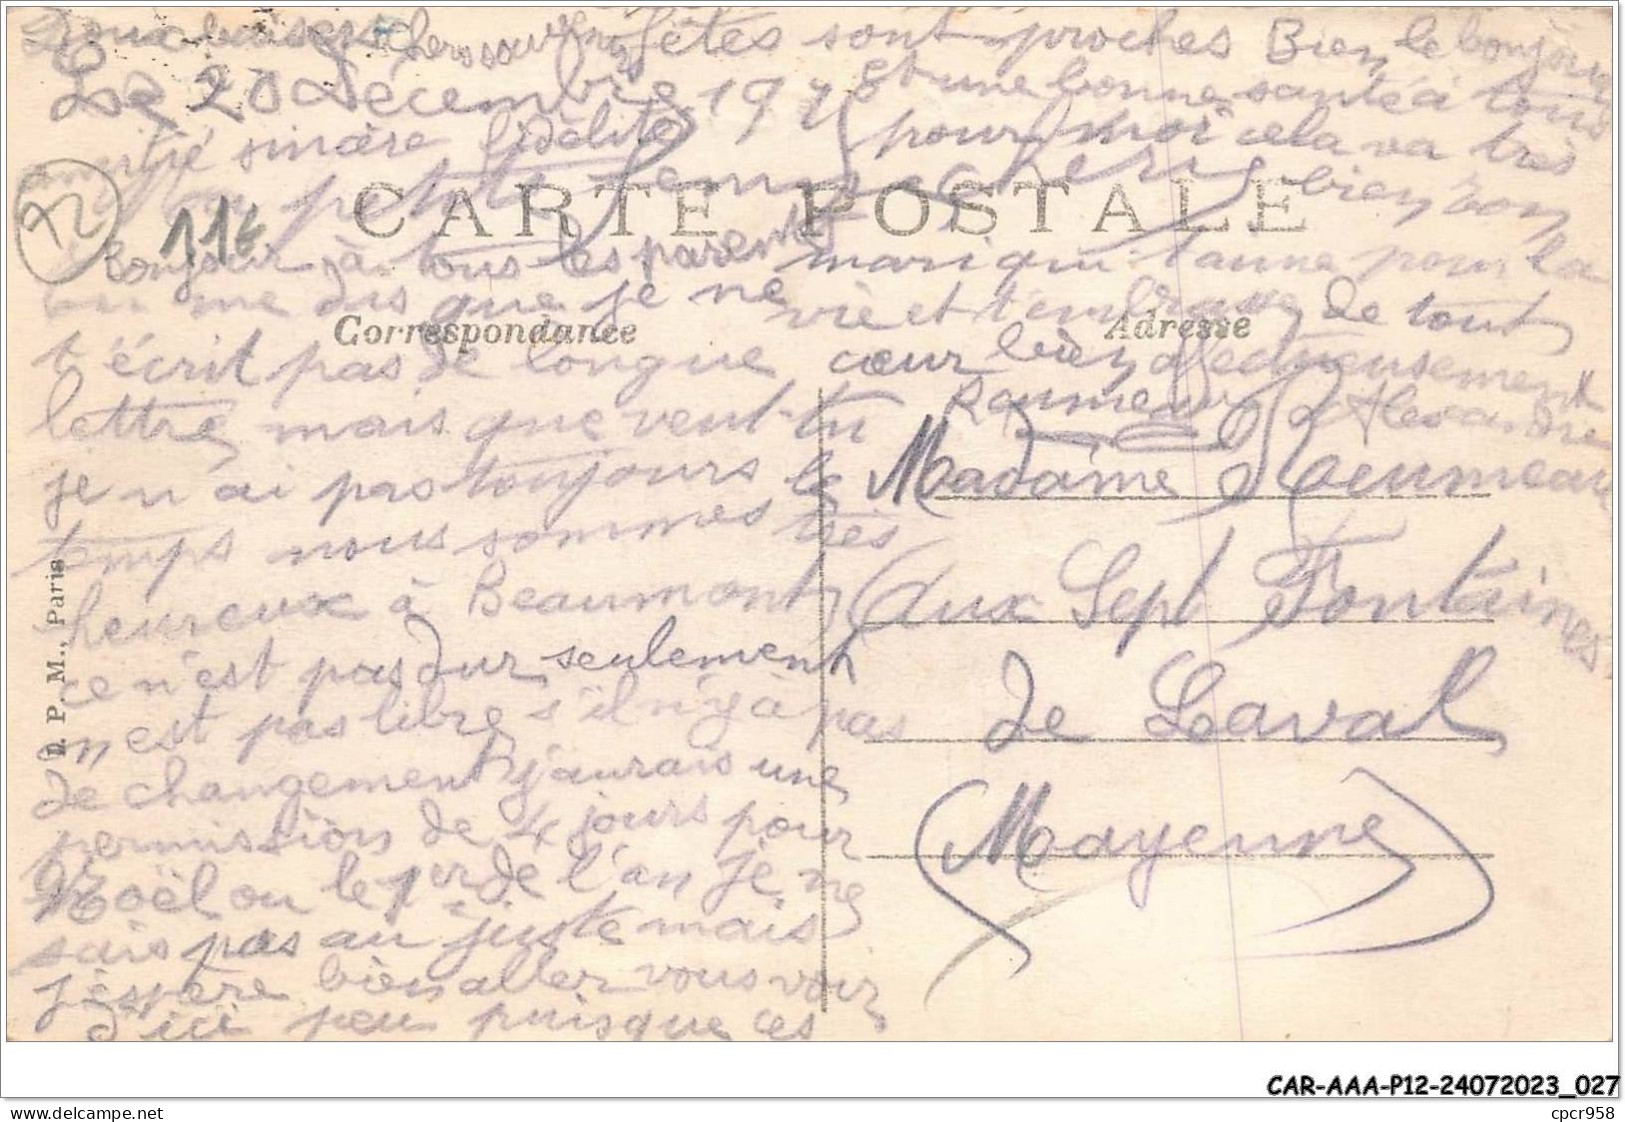 Doux baisers chers souvenirs
Le 20 Décembre 1918
amitié sincère fidélité
ma petite femme chérie
bonjour à tous les parents
tu me dis que je ne
t'écrit pas de longue
lettre mais que veut-tu
je n'ai pas toujours le
temps nous sommes très
heureux à Beaumont
ce n'est pas dur seulement
on est pas libre s'il n'y à pas
de changement j'aurais une
permission de 4 jours pour
Noël ou le 1er de l'an je ne
sais pas au juste mais
j'éspère bien aller vous voir
d'ici peu puisque ces
fêtes sont proches Bien le bonjour
et une bonne santé à tous
pour moi cela va très
bien ton
mari qui t'aime pour la
vie et t'embrasse de tout
cœur bien affectueusement
Reumeau Alexandre
CARTE POSTALE
Correspondance
Adresse
Madame Reumeau
aux Sept Fontaines
de Laval
(Mayenne)
D. P. M., Paris
72
11€
CAR-AAA-P12-24072023_027
cpcr958